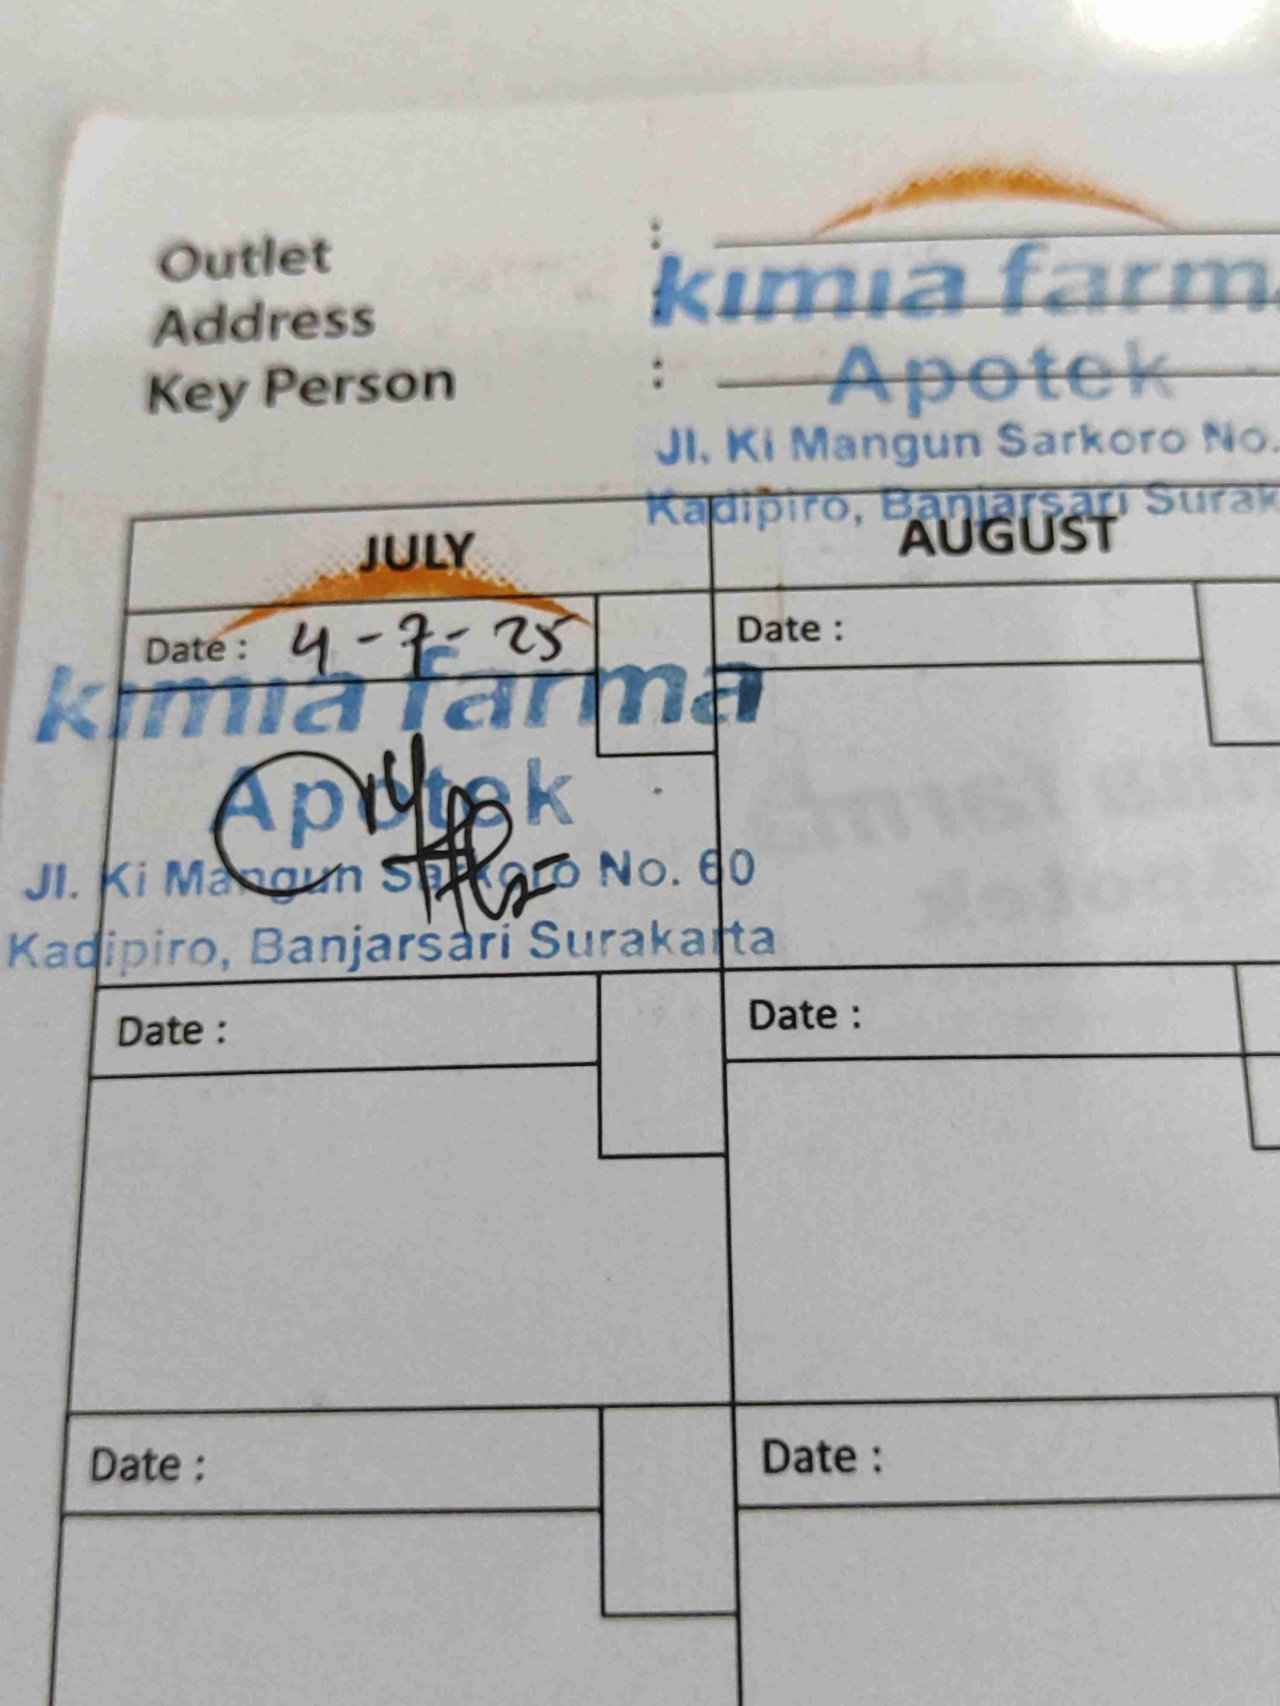 Outlet :
Address :
Key Person :
kimia farm
Apotek
Jl. Ki Mangun Sarkoro No.
Kadipiro, Banjarsari Surak
JULY
AUGUST
Date : 4-7-25
Date :
kimia farma
Apotek
Jl. Ki Mangun Sarkoro No. 60
Kadipiro, Banjarsari Surakarta
Date :
Date :
Date :
Date :